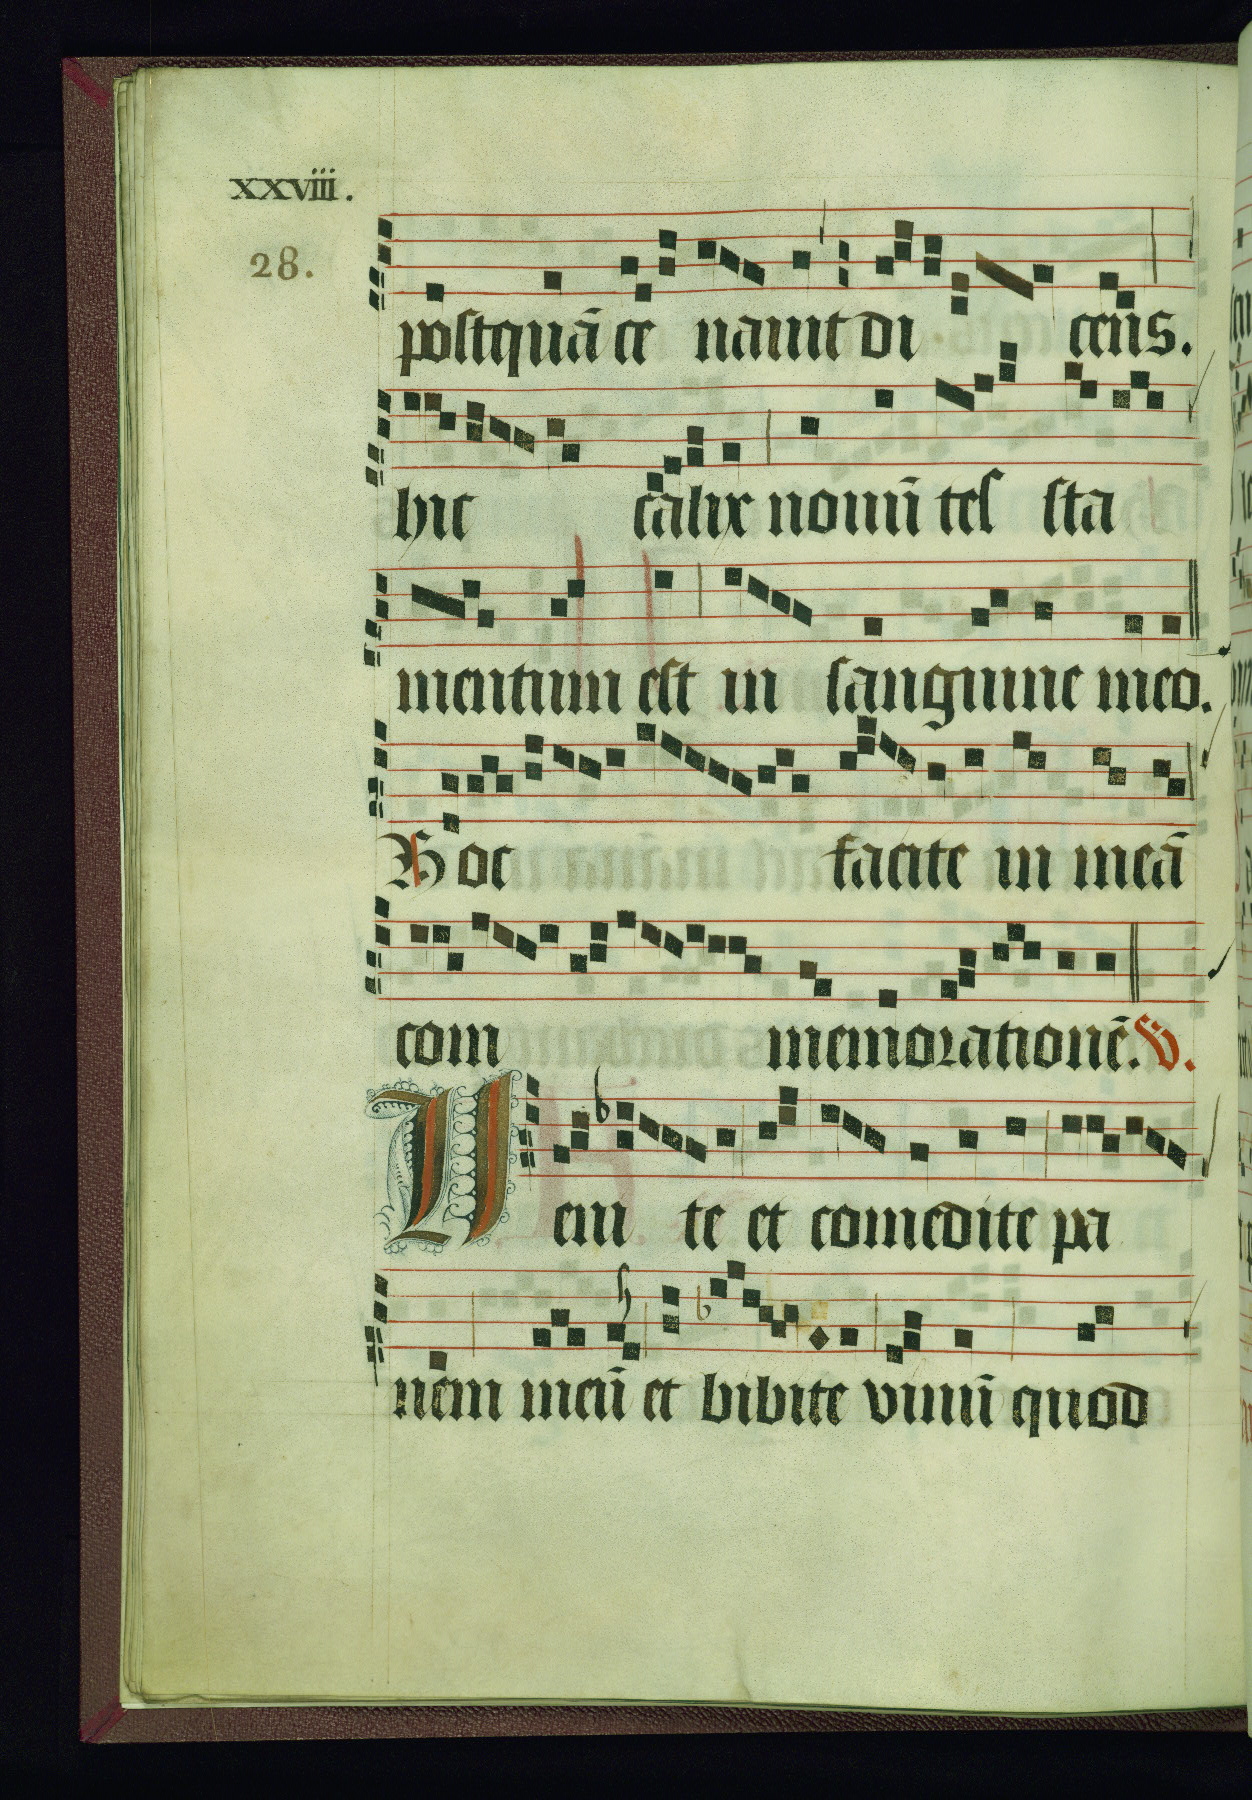 xxviii.
28.
postquā ce nauit di cens.
hic calix nouū tes sta
mentum est in sanguine meo.
Hoc facite in meā
com memorationē. V.
Veni te et comedite pa
nem meū et bibite vinū quod